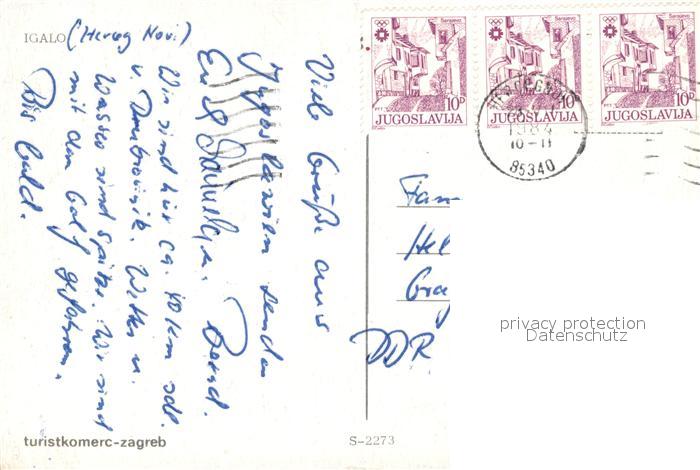 IGALO (Herceg Novi)
Viele Grüße aus
Jugoslawien senden
Bernd.
Wir sind hier ca. 40 km südl.
v. Dubrovnik. Wetter u.
Wasser sind spitze. Wir sind
mit dem Golf gefahren.
Bis bald.
Sarajevo
PTT
10D
JUGOSLAVIJA
Sarajevo
10
JUGOSLAVIJA
Sarajevo
PTT
10D
JUGOSLAVIJA
1984
10-11
85340
Fam
Hel
DDR
privacy protection
Datenschutz
turistkomerc-zagreb
S-2273